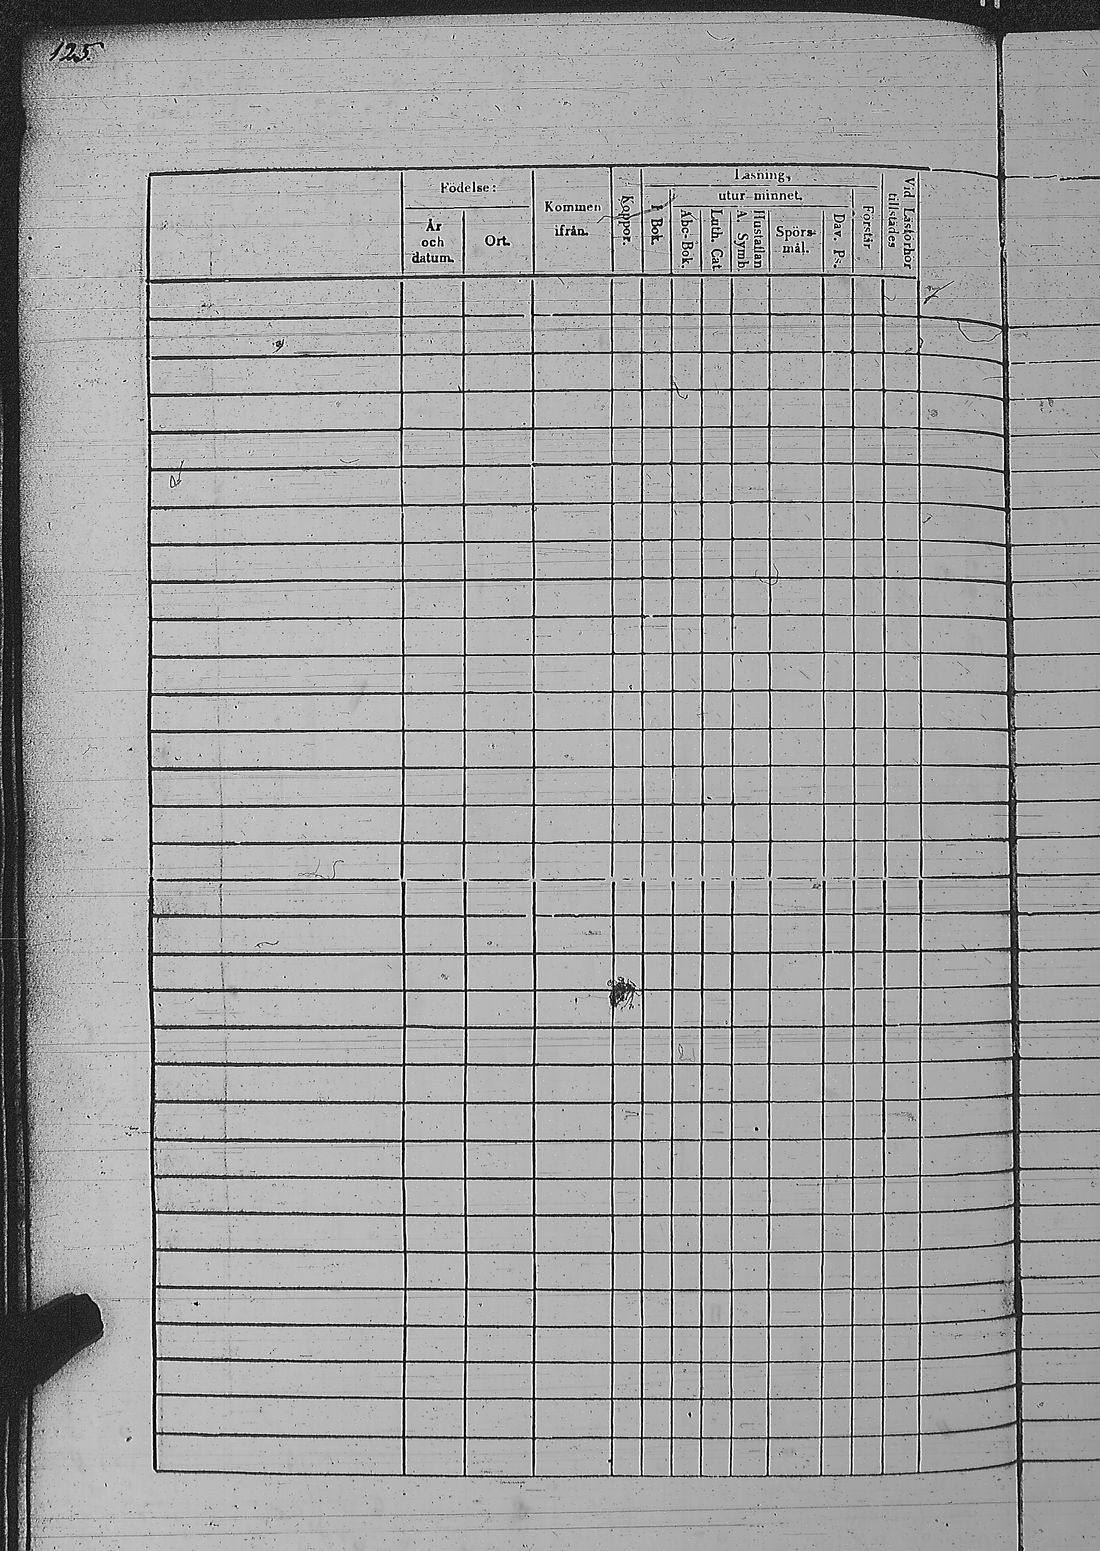 125.
Födelse:
År
och
datum.
Ort.
Kommen
ifrån.
Koppor.
Läsning,
I Bok.
utur minnet.
Abc-Bok.
Luth. Cat
Hustaflan
A. Symb.
Spörs-
mål.
Dav. Ps.
Förstår
Vid Läsförhör
tillstädes